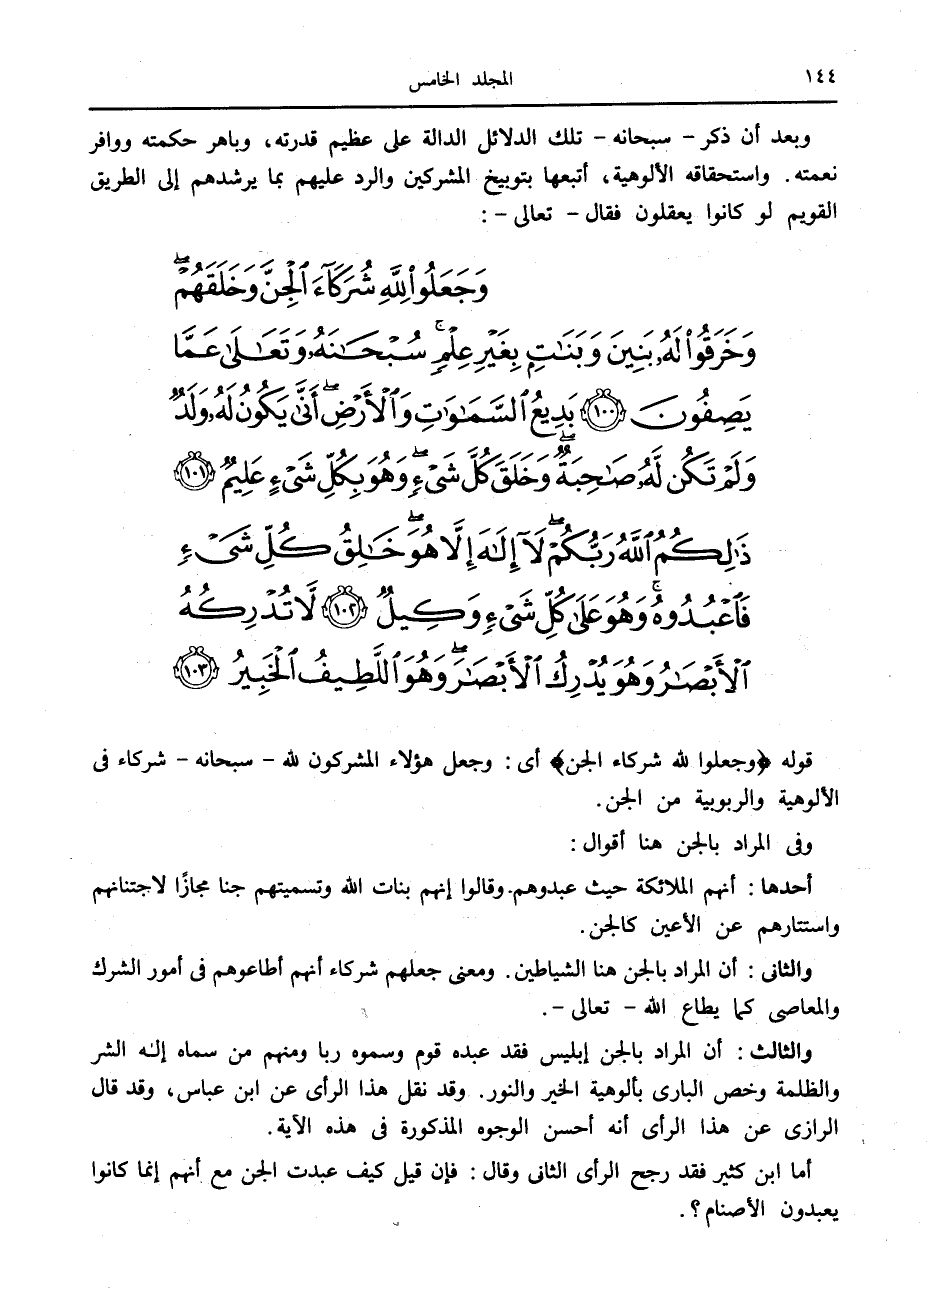 ١٤٤
المجلد الخامس
وبعد أن ذكر – سبحانه – تلك الدلائل الدالة على عظيم قدرته، وباهر حكمته ووافر
نعمته. واستحقاقه الألوهية، أتبعها بتوبيخ المشركين والرد عليهم بما يرشدهم إلى الطريق
القويم لو كانوا يعقلون فقال – تعالى – :
وَجَعَلُوا۟ لِلَّهِ شُرَكَآءَ ٱلْجِنَّ وَخَلَقَهُمْ ۖ
وَخَرَقُوا۟ لَهُۥ بَنِينَ وَبَنَـٰتٍۭ بِغَيْرِ عِلْمٍ ۚ سُبْحَـٰنَهُۥ وَتَعَـٰلَىٰ عَمَّا
يَصِفُونَ ۝١٠٠ بَدِيعُ ٱلسَّمَـٰوَٰتِ وَٱلْأَرْضِ ۖ أَنَّىٰ يَكُونُ لَهُۥ وَلَدٌ
وَلَمْ تَكُن لَّهُۥ صَـٰحِبَةٌ ۖ وَخَلَقَ كُلَّ شَىْءٍ ۖ وَهُوَ بِكُلِّ شَىْءٍ عَلِيمٌ ۝١٠١
ذَٰلِكُمُ ٱللَّهُ رَبُّكُمْ ۖ لَآ إِلَـٰهَ إِلَّا هُوَ ۖ خَـٰلِقُ كُلِّ شَىْءٍ
فَٱعْبُدُوهُ ۚ وَهُوَ عَلَىٰ كُلِّ شَىْءٍ وَكِيلٌ ۝١٠٢ لَّا تُدْرِكُهُ
ٱلْأَبْصَـٰرُ وَهُوَ يُدْرِكُ ٱلْأَبْصَـٰرَ ۖ وَهُوَ ٱللَّطِيفُ ٱلْخَبِيرُ ۝١٠٣
قوله ﴿وجعلوا لله شركاء الجن﴾ أى : وجعل هؤلاء المشركون لله – سبحانه – شركاء فى
الألوهية والربوبية من الجن.
وفى المراد بالجن هنا أقوال :
أحدها : أنهم الملائكة حيث عبدوهم. وقالوا إنهم بنات الله وتسميتهم جنا مجازًا لاجتنانهم
واستتارهم عن الأعين كالجن.
والثانى : أن المراد بالجن هنا الشياطين. ومعنى جعلهم شركاء أنهم أطاعوهم فى أمور الشرك
والمعاصى كما يطاع الله – تعالى –.
والثالث : أن المراد بالجن إبليس فقد عبده قوم وسموه ربا ومنهم من سماه إله الشر
والظلمة وخص البارى بألوهية الخير والنور. وقد نقل هذا الرأى عن ابن عباس، وقد قال
الرازى عن هذا الرأى أنه أحسن الوجوه المذكورة فى هذه الآية.
أما ابن كثير فقد رجح الرأى الثانى وقال : فإن قيل كيف عبدت الجن مع أنهم إنما كانوا
يعبدون الأصنام؟.